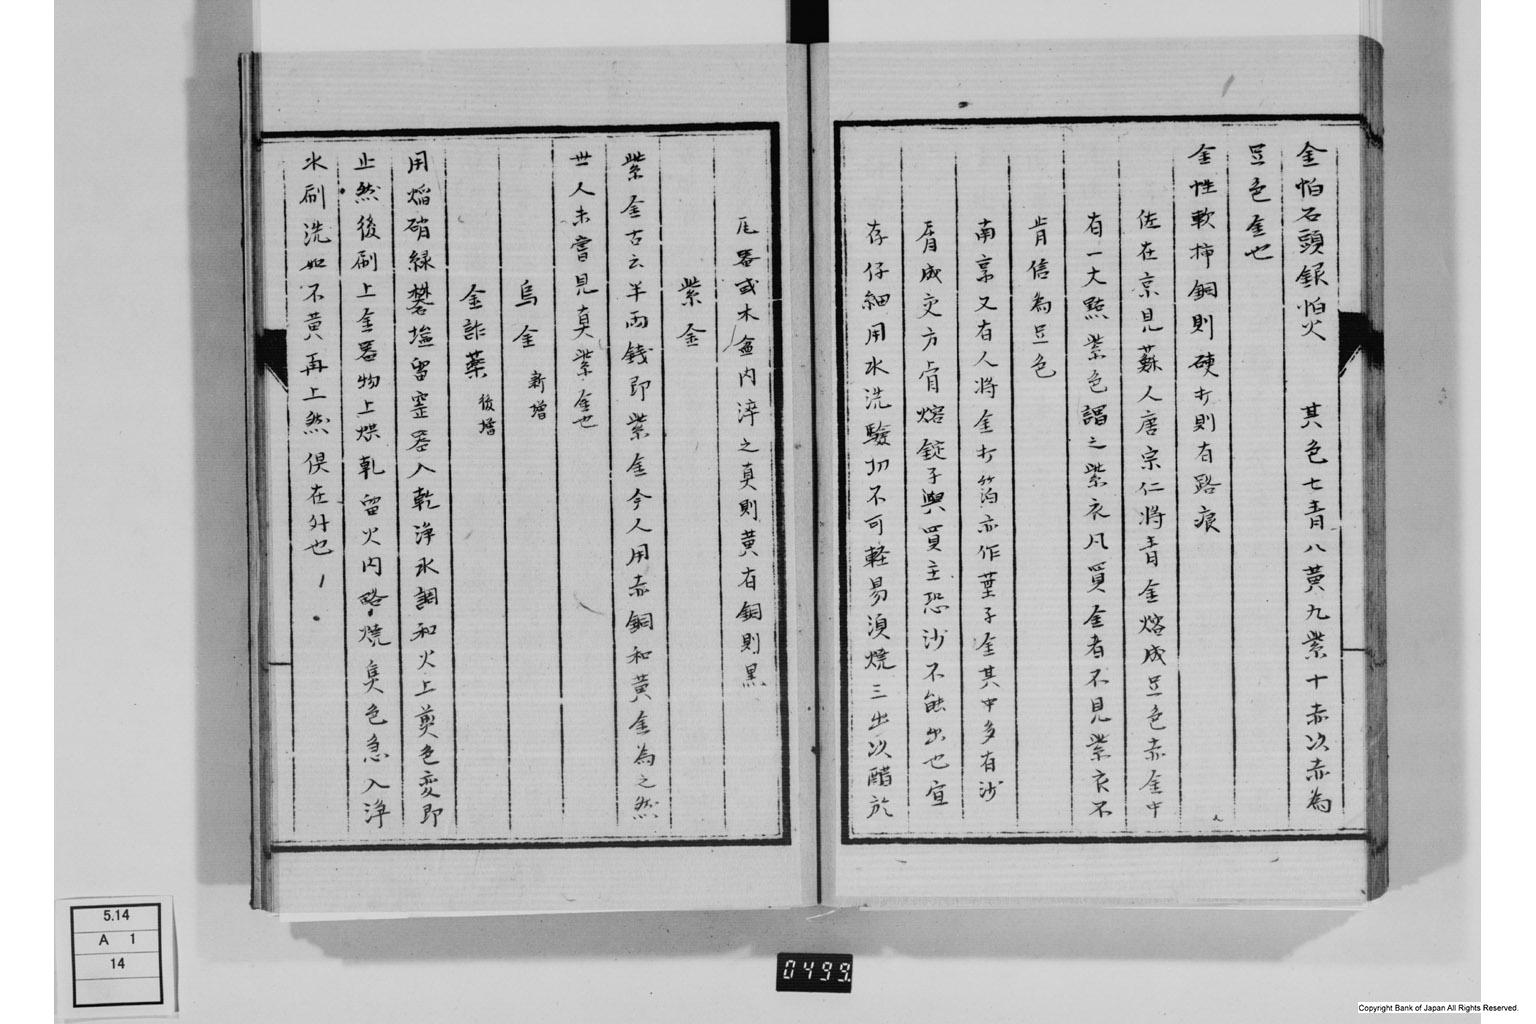 金怕石頭銀怕火　其色七青八黃九紫十赤以赤為
豆色金也
金性軟柿銅則硬打則有路痕
佐在京見蘓人唐宗仁將青金熔成豆色赤金中
有一大㸃紫色謂之紫衣凡買金者不見紫衣不
肯信為豆色
南京又有人將金打箔亦作葉子金其中多有沙
屑成交方肯熔錠子與買主恐沙不能出也宜
存仔細用水洗驗切不可軽易須燒三出以醋於
瓦器或木盒内淬之真則黄有銅則黒
紫金
紫金古云半兩錢即紫金今人用赤銅和黃金為之然
世人未嘗見真紫金也
烏金　新增
金詐藥　後增
用焰硝綠礬塩留窑器入乾浄水調和火上煎色変即
止然後刷上金器物上烘乹留火内略燒臭色急入浄
水刷洗如不黄再上然俱在外也
5.14
A 1
14
0499
Copyright Bank of Japan All Rights Reserved.